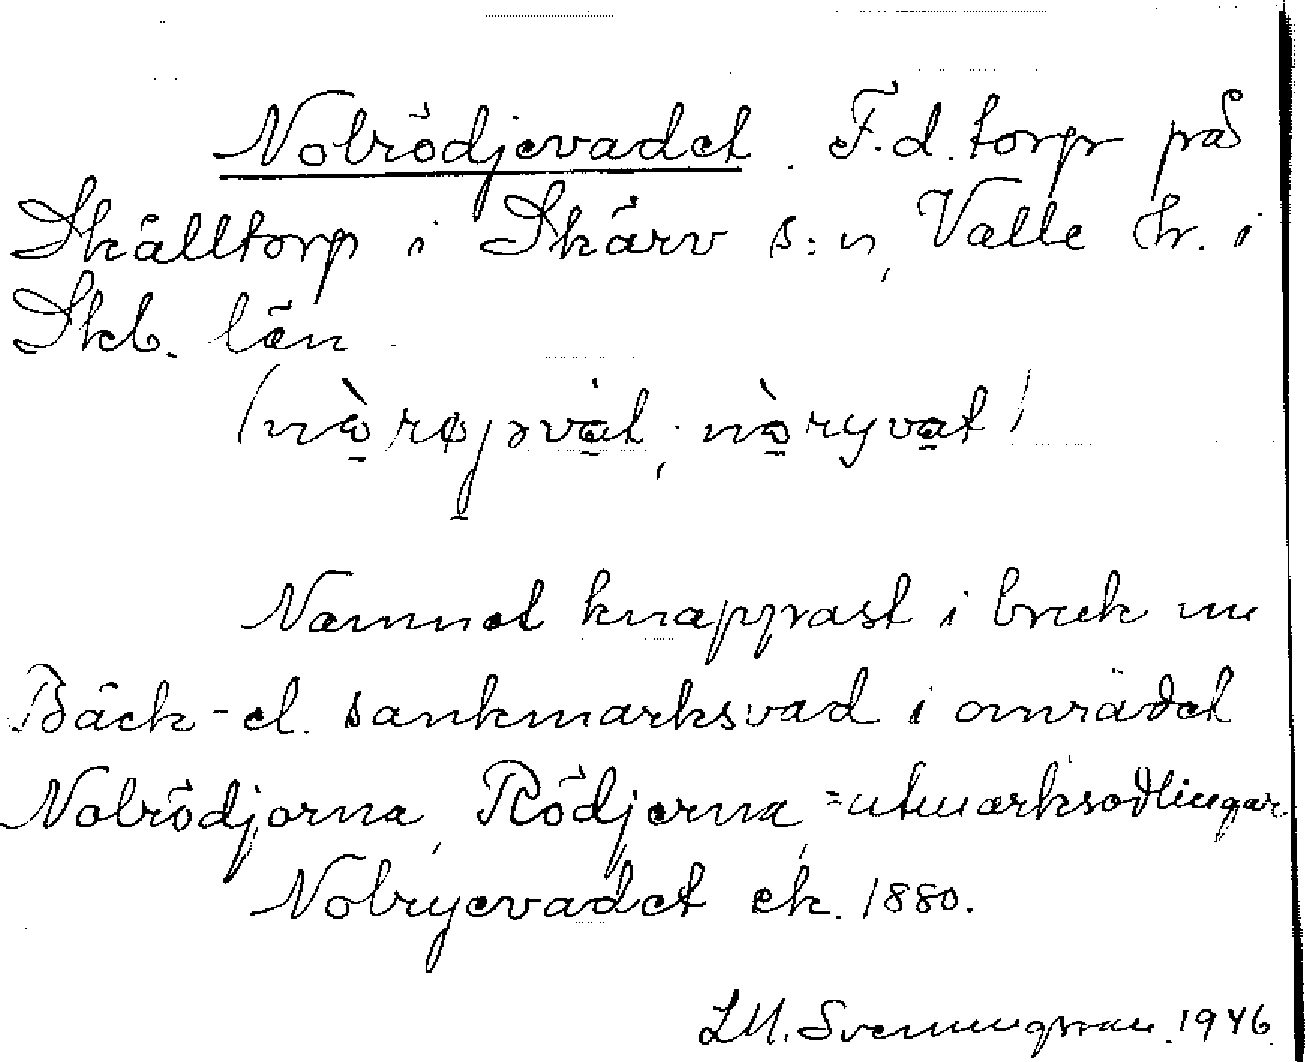 Nolrödjevadet. F.d. torp på
Skälltorp i Skärv s:n, Valle hr. i
Skb. län.
(nò̱røj̱əvàt, nò̱ryva̱t)
Namnet knappast i bruk nu
Bäck- el. sankmarksvad i området
Nolrödjorna, Rödjerna, = utmarksodlingar
Nolryevadet ek. 1880.
L.M. Svenungsson. 1946.